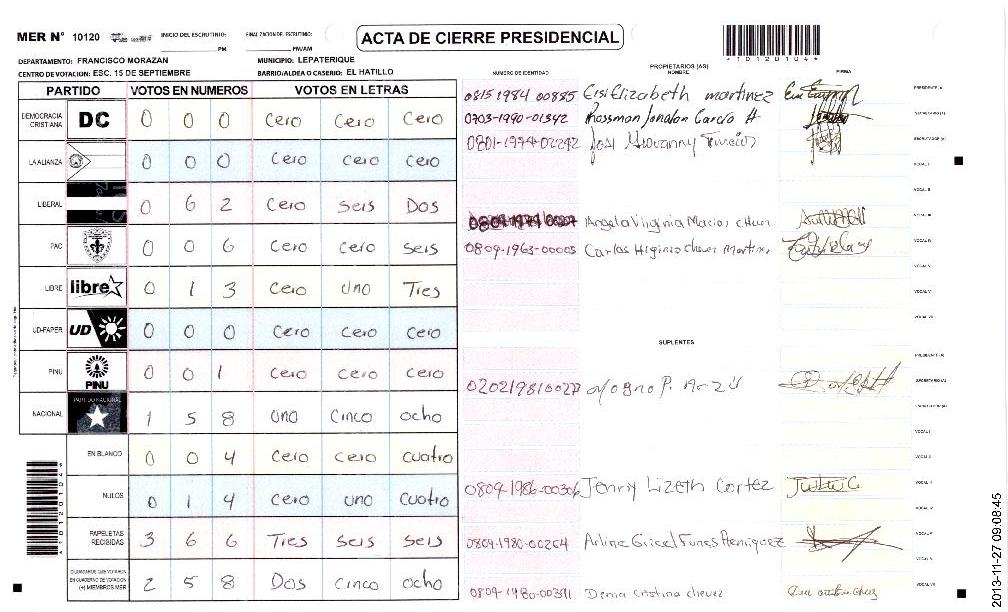 MER N° 10120 INICIO DEL ESCRUTINIO: PM FINALIZACION DEL ESCRUTINIO: PM/AM
ACTA DE CIERRE PRESIDENCIAL
*1012014*
DEPARTAMENTO: FRANCISCO MORAZAN MUNICIPIO: LEPATERIQUE
CENTRO DE VOTACION: ESC. 15 DE SEPTIEMBRE BARRIO/ALDEA O CASERIO: EL HATILLO
PARTIDO VOTOS EN NUMEROS VOTOS EN LETRAS
DEMOCRACIA CRISTIANA DC 0 0 0 Cero Cero Cero
LA ALIANZA 0 0 0 Cero Cero Cero
LIBERAL 0 6 2 Cero Seis Dos
PAC 0 0 6 Cero Cero Seis
LIBRE libre 0 1 3 Cero Uno Tres
UD-FAPER UD 0 0 0 Cero Cero Cero
PINU PINU 0 0 1 Cero Cero Cero
NACIONAL PARTIDO NACIONAL 1 5 8 Uno Cinco Ocho
EN BLANCO 0 0 4 Cero Cero Cuatro
NULOS 0 1 4 Cero Uno Cuatro
PAPELETAS RECIBIDAS 3 6 6 Tres Seis Seis
CIUDADANOS QUE VOTARON EN CUADERNO DE VOTACION (+) MIEMBROS MER 2 5 8 Dos Cinco Ocho
NUMERO DE IDENTIDAD PROPIETARIOS (AS) NOMBRE FIRMA
0815 1984 00885 Elizabeth martinez PRESIDENTE (A)
0703-1990-01342 Rossman Jonatan García H SECRETARIO (A)
0801-1974-02242 Jose Giovanny ESCRUTADOR (A)
VOCAL I
VOCAL II
Angela Virginia Macias VOCAL III
0809-1963-00005 Carlos Higinio Martinez VOCAL IV
VOCAL V
VOCAL VI
VOCAL VII
SUPLENTES
PRESIDENTE (A)
0202198100277 SECRETARIO (A)
ESCRUTADOR (A)
VOCAL I
VOCAL II
0809-1986-00306 Jenny Lizeth Cortez VOCAL III
VOCAL IV
0809-1980-00264 Arline Gricel Funes Henriquez VOCAL V
VOCAL VI
0809-1980-00311 Denia Cristina chevez VOCAL VII
2013-11-27 09:08:45